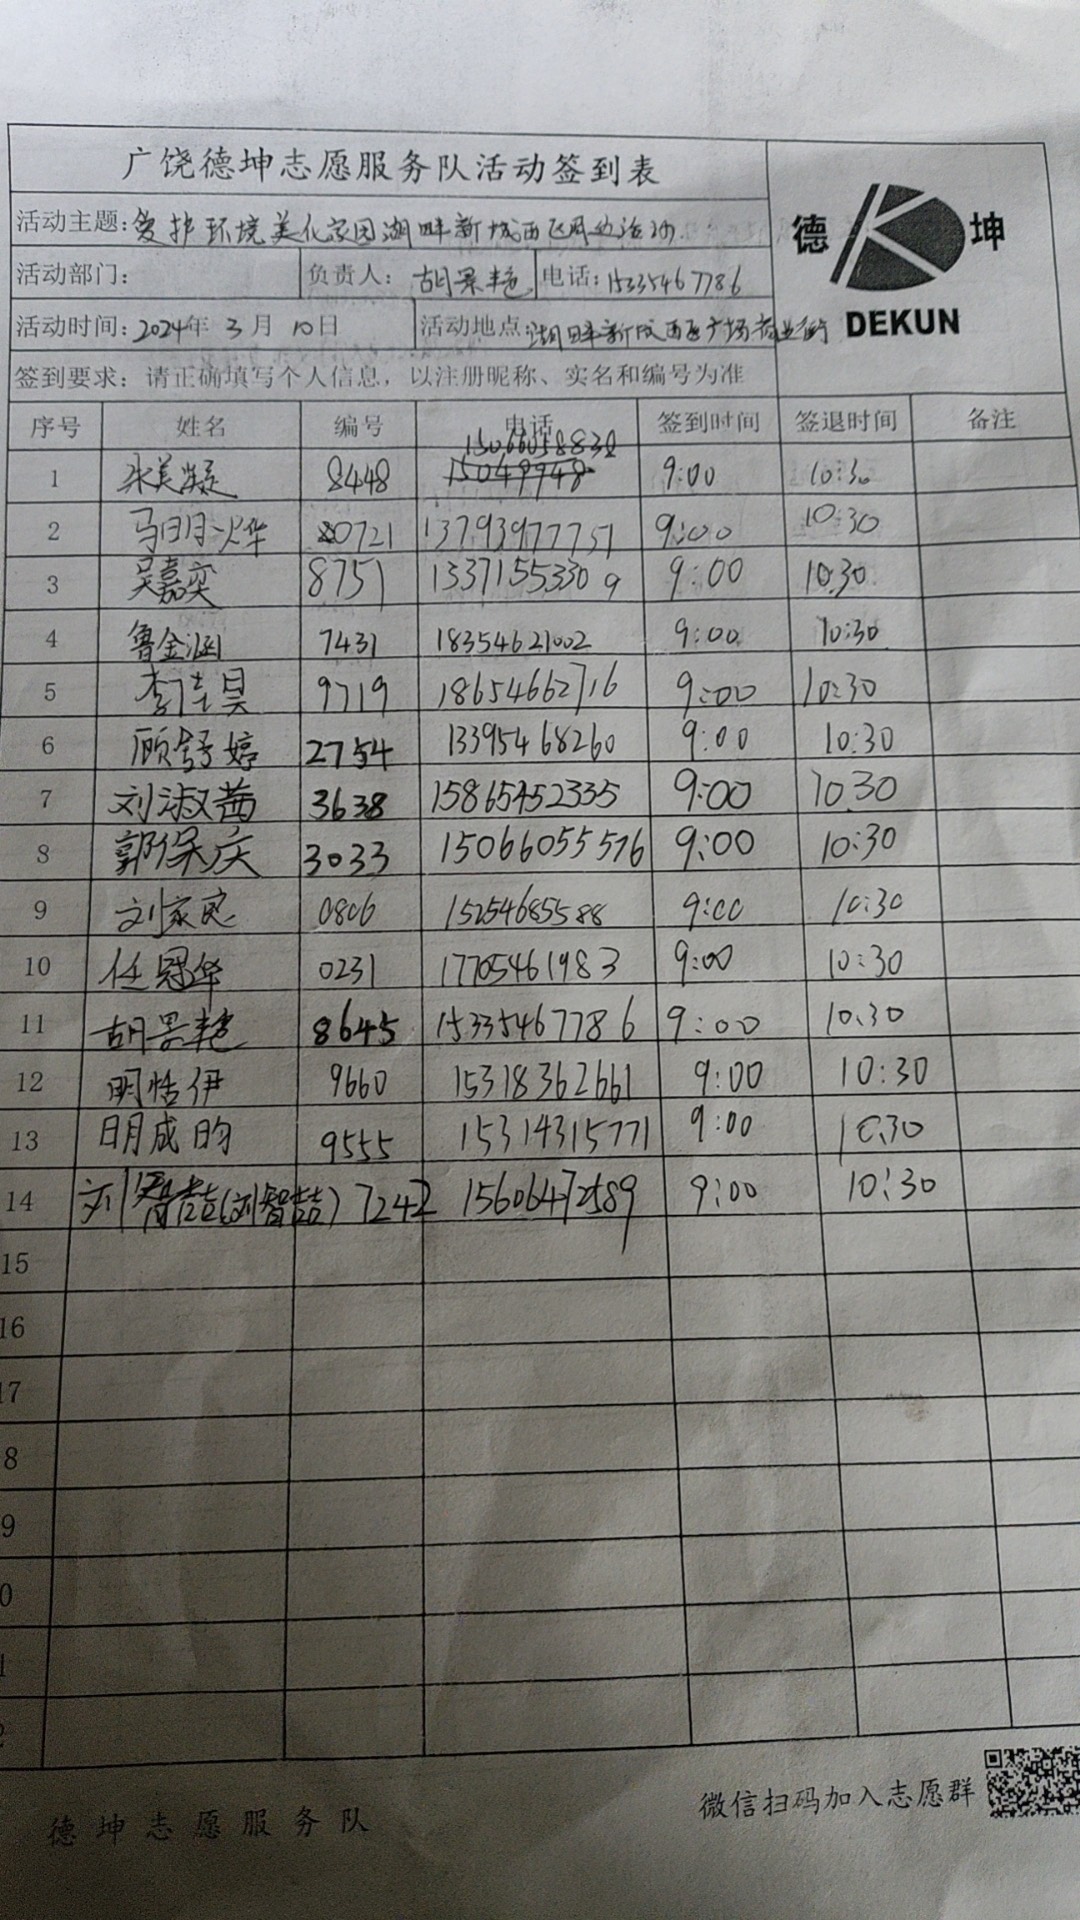 广饶德坤志愿服务队活动签到表
德 坤
DEKUN
活动主题: 爱护环境美化家园湖畔新城西区周边活动
活动部门: 负责人: 胡景艳 电话: 15335467786
活动时间: 2024年 3月 10日 活动地点: 湖畔新城西区广场商业街
签到要求: 请正确填写个人信息, 以注册昵称、实名和编号为准
序号 姓名 编号 电话 签到时间 签退时间 备注
1 8448 15066058838 9:00 10:30
2 马明烨 0721 13793977751 9:00 10:30
3 吴嘉奕 8751 13371553309 9:00 10:30
4 鲁金涵 7431 18354621002 9:00 10:30
5 李佳昊 9719 18654662716 9:00 10:30
6 顾舒婷 2754 13395468260 9:00 10:30
7 刘淑茜 3638 15865452335 9:00 10:30
8 郭保庆 3033 15066055576 9:00 10:30
9 刘家良 0806 15254685588 9:00 10:30
10 任冠华 0231 17705461983 9:00 10:30
11 胡景艳 8645 15335467786 9:00 10:30
12 明恬伊 9660 15318362661 9:00 10:30
13 明成昀 9555 15314315771 9:00 10:30
14 刘智喆(刘智喆) 7242 15606472589 9:00 10:30
15
16
17
8
9
0
1
2
德坤志愿服务队
微信扫码加入志愿群